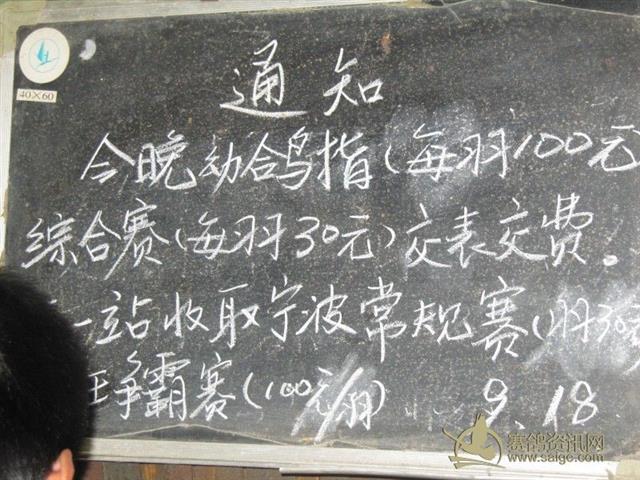 40×60
通知
今晚幼鸽指(每羽100元
综合赛(每羽30元)交表交费。
一站收取宁波常规赛(羽30
王争霸赛(100元/羽) 9.18
赛鸽资讯网
www.saige.com